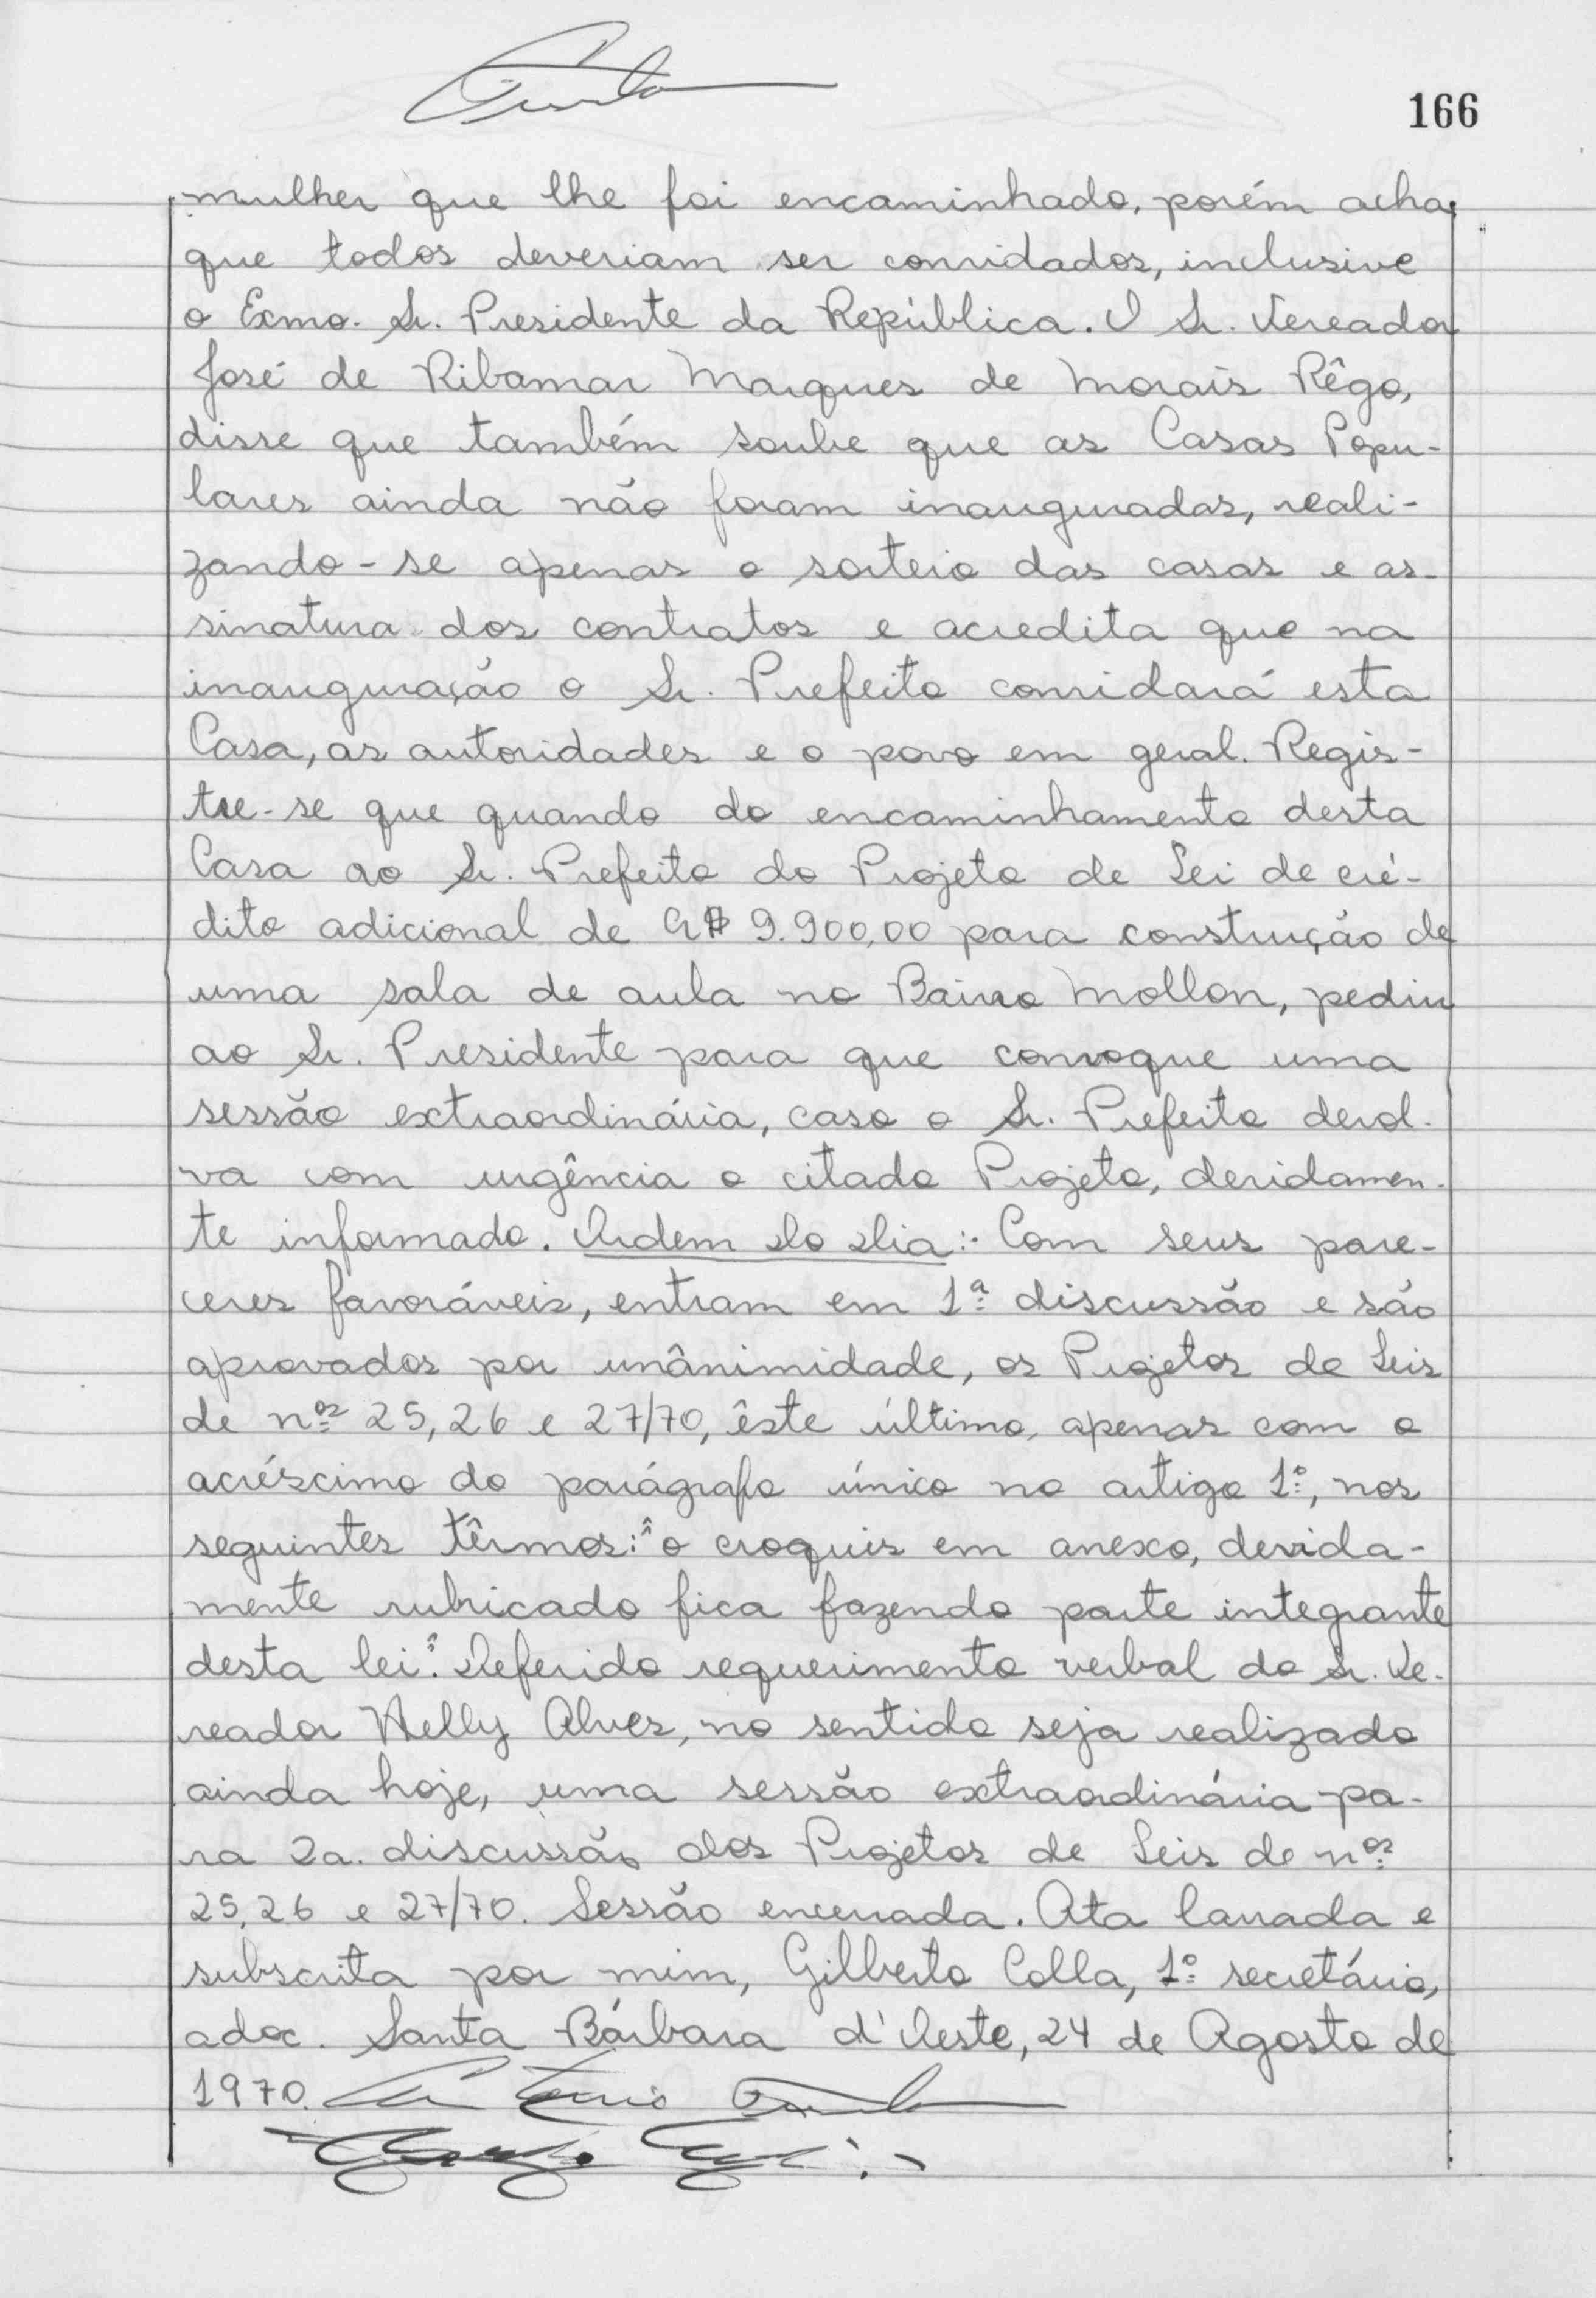 166
mulher que lhe foi encaminhado, porém acha
que todos deveriam ser convidados, inclusive
o Exmo. Sr. Presidente da República. O Sr. Vereador
José de Ribamar Marques de Morais Rêgo,
disse que também soube que as Casas Popu-
lares ainda não foram inauguradas, reali-
zando-se apenas o sorteio das casas e as-
sinatura dos contratos e acredita que na
inauguração o Sr. Prefeito convidará esta
Casa, as autoridades e o povo em geral. Regis-
tre-se que quando do encaminhamento desta
Casa ao Sr. Prefeito do Projeto de Lei de cré-
dito adicional de Cr$ 9.900,00 para construção de
uma sala de aula no Bairro Mollon, pediu
ao Sr. Presidente para que convoque uma
sessão extraordinária, caso o Sr. Prefeito devol-
va com urgência o citado Projeto, devidamen-
te informado. Ordem do dia:- Com seus pare-
ceres favoráveis, entram em 1ª discussão e são
aprovados por unânimidade, os Projetos de Leis
de nºs 25, 26 e 27/70, êste último, apenas com o
acréscimo do parágrafo único no artigo 1º, nos
seguintes têrmos: "o croquis em anexo, devida-
mente rubricado fica fazendo parte integrante
desta lei". Deferido requerimento verbal do Sr. Ve-
reador Welly Alves, no sentido seja realizado
ainda hoje, uma sessão extraordinária pa-
ra 2a. discussão dos Projetos de Leis de nºs
25, 26 e 27/70. Sessão encerrada. Ata lavrada e
subscrita por mim, Gilberto Colla, 1º secretário,
adoc. Santa Bárbara d'Oeste, 24 de Agosto de
1970.